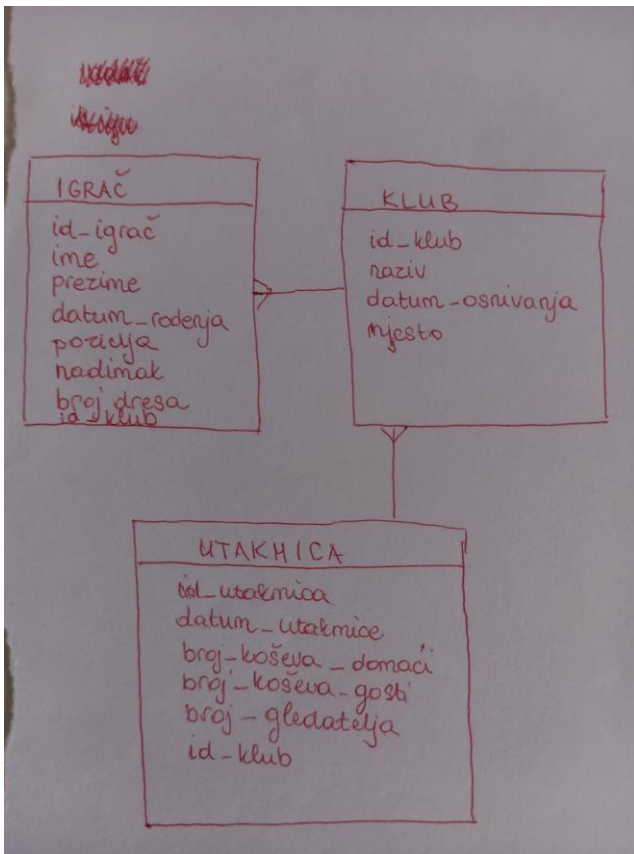 IGRAČ
id_igrač
ime
prezime
datum_rođenja
pozicija
nadimak
broj dresa
id_klub
KLUB
id_klub
naziv
datum_osnivanja
mjesto
UTAKMICA
id_utakmica
datum_utakmice
broj_koševa_domaći
broj_koševa_gosti
broj_gledatelja
id_klub